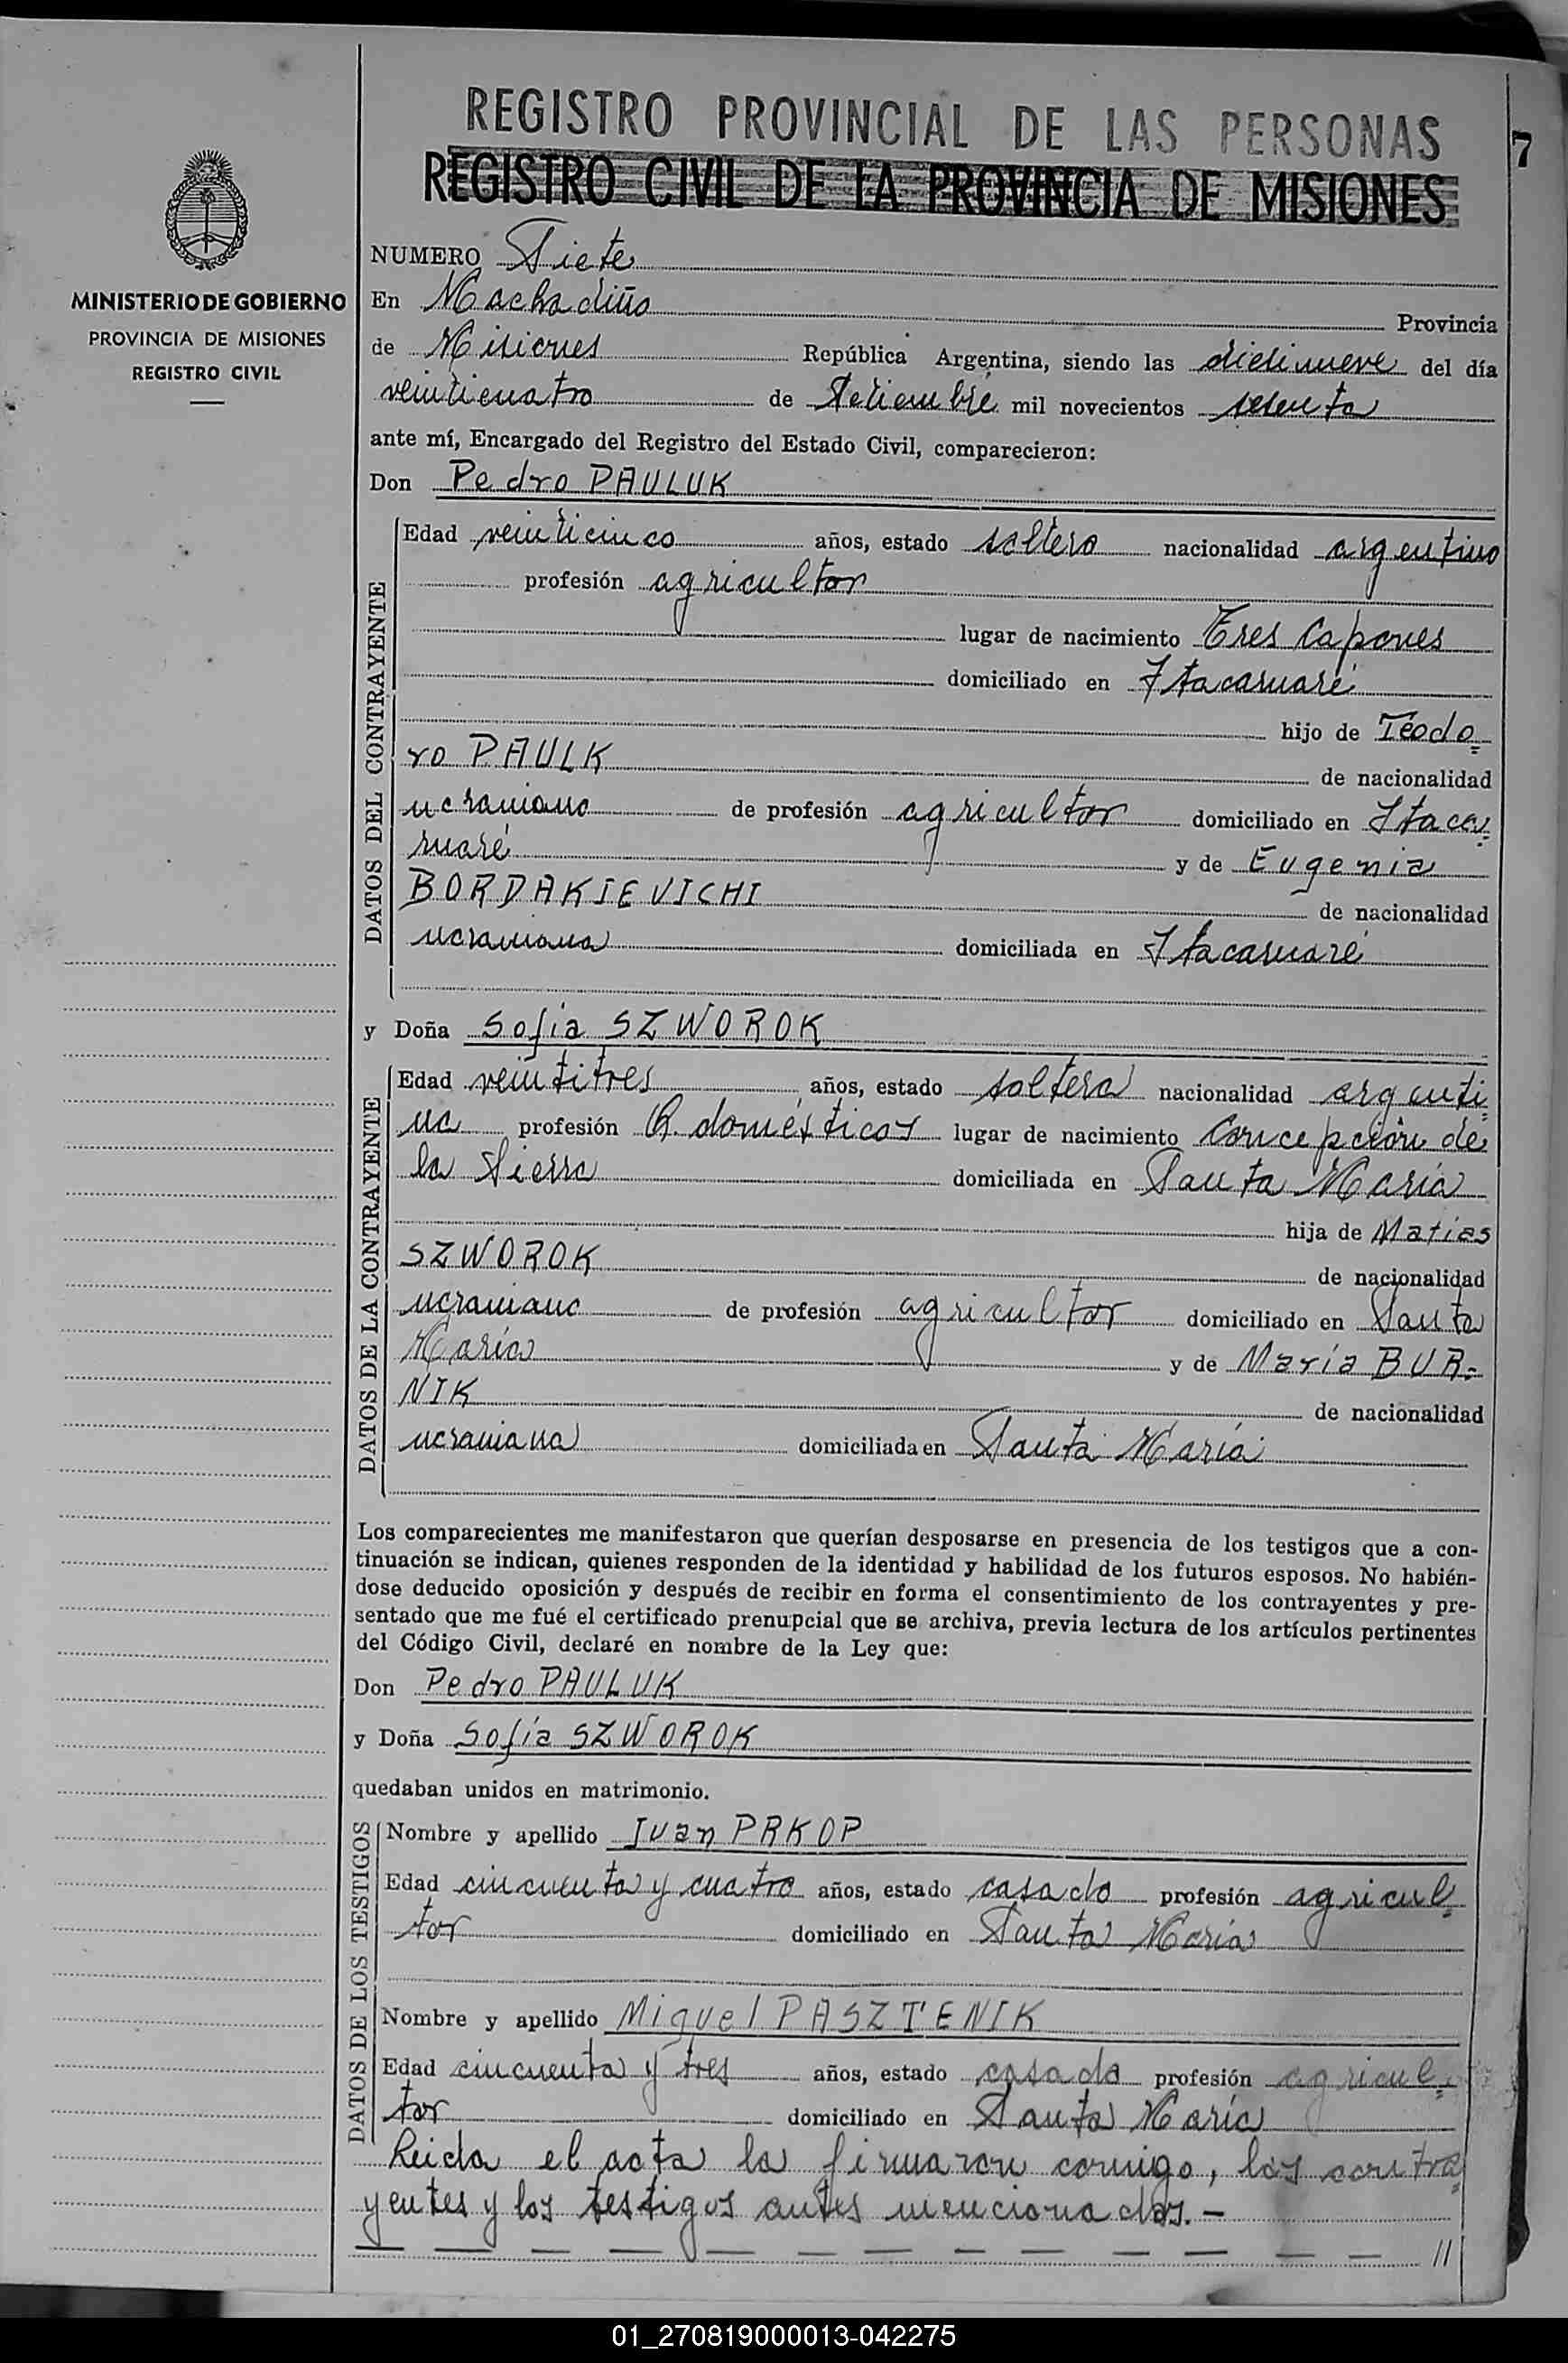 REGISTRO PROVINCIAL DE LAS PERSONAS
7
REGISTRO CIVIL DE LA PROVINCIA DE MISIONES
MINISTERIO DE GOBIERNO
PROVINCIA DE MISIONES
REGISTRO CIVIL
NUMERO Siete
En Machadiño Provincia
de Misiones República Argentina, siendo las diecinueve del día
veinticuatro de Setiembre mil novecientos sesenta
ante mí, Encargado del Registro del Estado Civil, comparecieron:
Don Pedro PAULUK
DATOS DEL CONTRAYENTE
Edad veinticinco años, estado soltero nacionalidad argentino
profesión agricultor
lugar de nacimiento Tres Capones
domiciliado en Itacaruaré
hijo de Teodo=
ro PAULK de nacionalidad
ucraniano de profesión agricultor domiciliado en Itaca=
ruaré y de Eugenia
BORDAKIEVICHI de nacionalidad
ucraniana domiciliada en Itacaruaré
y Doña Sofía SZWOROK
DATOS DE LA CONTRAYENTE
Edad veintitres años, estado soltera nacionalidad argenti=
na profesión Q. domésticos lugar de nacimiento Concepción de
la Sierra domiciliada en Santa María
hija de Matias
SZWOROK de nacionalidad
ucraniano de profesión agricultor domiciliado en Santa
María y de María BUR=
NIK de nacionalidad
ucraniana domiciliada en Santa María
Los comparecientes me manifestaron que querían desposarse en presencia de los testigos que a con-
tinuación se indican, quienes responden de la identidad y habilidad de los futuros esposos. No habién-
dose deducido oposición y después de recibir en forma el consentimiento de los contrayentes y pre-
sentado que me fué el certificado prenupcial que se archiva, previa lectura de los artículos pertinentes
del Código Civil, declaré en nombre de la Ley que:
Don Pedro PAULUK
y Doña Sofía SZWOROK
quedaban unidos en matrimonio.
DATOS DE LOS TESTIGOS
Nombre y apellido Juan PRKOP
Edad cincuenta y cuatro años, estado casado profesión agricul=
tor domiciliado en Santa María
Nombre y apellido Miguel PASZTENIK
Edad cincuenta y tres años, estado casado profesión agricul=
tor domiciliado en Santa María
Leida el acta la firmaron conmigo, los contra=
yentes y los testigos antes mencionados.-
— — — — — — — — — — — — — //
01_270819000013-042275